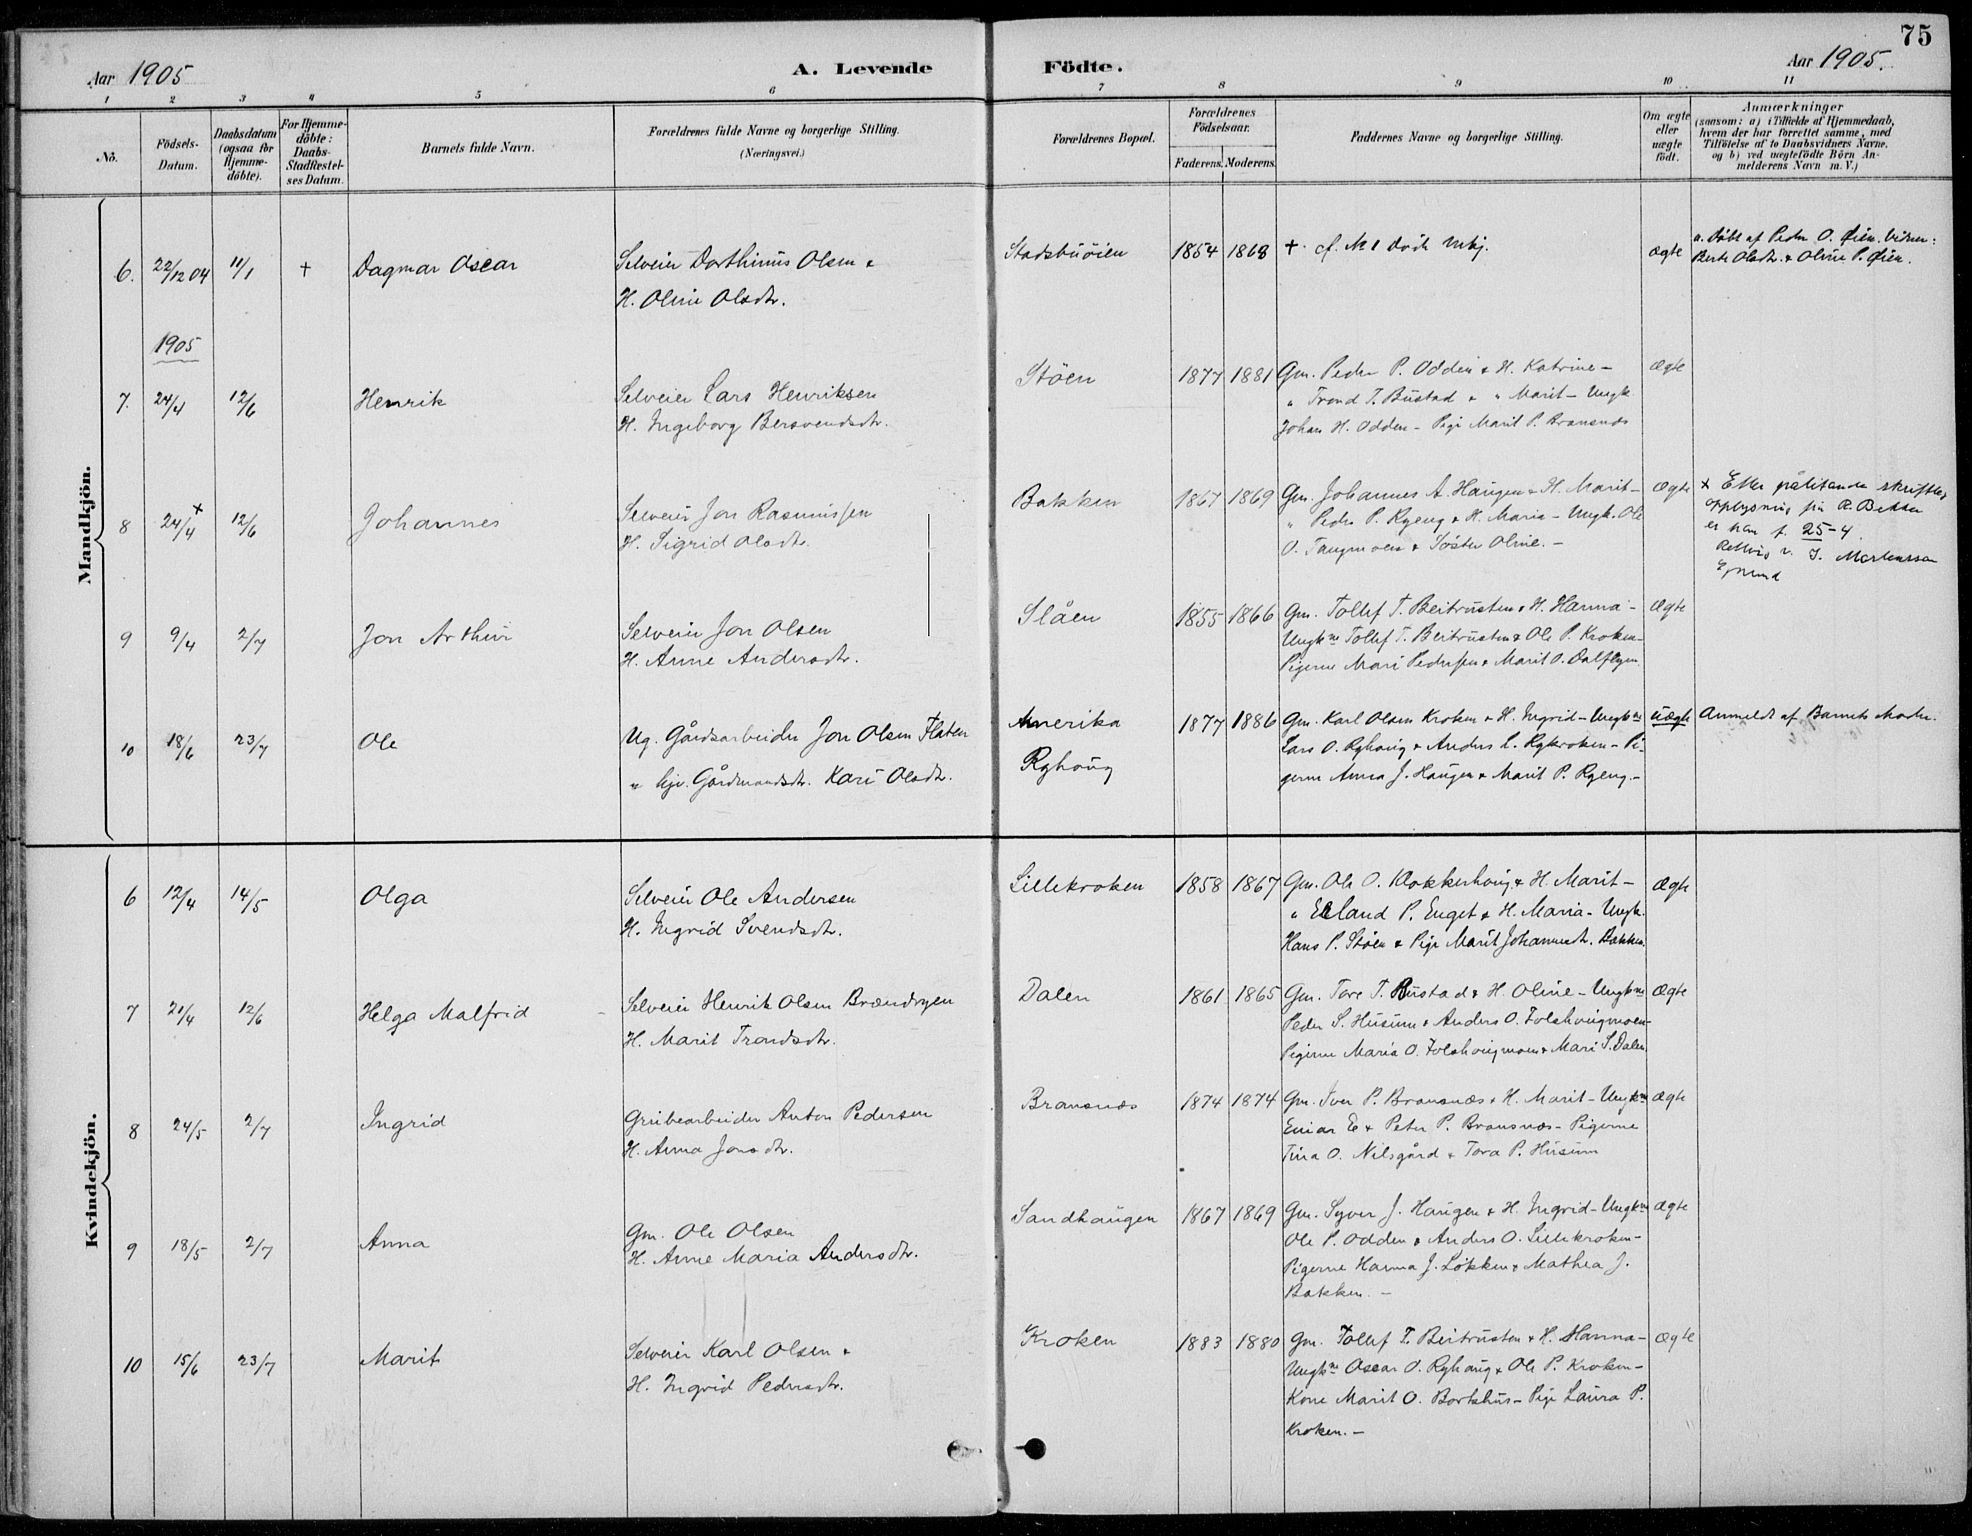 75
Aar 1905
A. Levende Födte.
Aar 1905.
1 2 3 4 5 6 7 8 9 10 11
No.
Födsels-Datum.
Daabsdatum (ogsaa for Hjemme-döbte).
For Hjemme-döbte: Daabs-Stadfæstel-ses Datum.
Barnets fulde Navn.
Forældrenes fulde Navne og borgerlige Stilling. (Næringsvei.)
Forældrenes Bopæl.
Forældrenes Födselsaar.
Faderens. Moderens.
Faddernes Navne og borgerlige Stilling.
Om ægte eller uægte födt.
Anmærkninger
(saasom: a) i Tilfælde af Hjemmedaab,
hvem der har forrettet samme, med
Tilföielse af to Daabsvidners Navne,
og b) ved uægtefödte Börn An-
melderens Navn m. V.)
Mandkjön.
6. 22/12 04 11/1 + Dagmar Oscar
Selveier Dorthinus Olsen &
H. Oline Olsdtr.
Stadsbuöien 1854 1868 +. cf. No 1 Döde Mkj.
ægte
a. Döbt af Peder O. Öien. Vidner:
Berte Olsdtr. & Oline P. Öien.
1905
7. 24/4 12/6 Henrik
Selveier Lars Henriksen
H. Ingeborg Bersvendsdtr.
Stöen 1877 1881 Gm. Peder P. Odden & H. Katrine –
" Trond T. Bustad & " Marit – Ungk.
Johan H. Odden – Pige Marit P. Bransnæs
Ægte
8 24/4 + 12/6 Johannes
Selveier Jon Rasmussen
H. Sigrid Olsdtr.
Bakken 1867 1869 Gm. Johannes A. Haugen & H. Marit –
" Peder P. Ryeng & H. Maria – Ungk. Ole
O. Tangmoen & Söster Oline. –
Ægte
x Etter pålitende skriftleg
opplysning frå R. Bakken
er han f. 25-4.
Retting v. J. Mortensson
Egnund
9 9/4 2/7 Jon Arthur
Selveier Jon Olsen
H. Anne Andersdtr.
Slåen 1855 1866 Gm. Tollef T. Beitrusten & H. Hanna –
Ungkne Tollef T. Beitrusten & Ole P. Kroken –
Pigerne Mari Pedersen & Marit O. Dalflyen.
Ægte
10 18/6 23/7 Ole
Ug. Gårdsarbeider Jon Olsen Flaten
" hjv. Gårdmandsdtr. Kari Olsdtr.
Amerika
Ryhoug
1877 1886 Gm. Karl Olsen Kroken & H. Ingrid – Ungkne
Lars O. Ryhoug & Anders L. Rykroken – Pi-
gerne Anna J. Haugen & Marit P. Ryeng. –
Uægte
Anmeldt af Barnets Moder.
Kvindekjön.
6 12/4 14/5 Olga
Selveier Ole Andersen
H. Ingrid Svendsdtr.
Lillekroken 1858 1867 Gm. Ole O. Klokkerhoug & H. Marit –
" Elland P. Enget & H. Maria – Ungk.
Hans P. Stöen & Pige Marit Johannesdtr. Bakken.
Ægte
7 21/4 12/6 Helga Malfrid
Selveier Henrik Olsen Brændryen
H. Marit Trondsdtr.
Dalen 1861 1865 Gm. Tore T. Bustad & H. Oline – Ungkne
Peder S. Husum & Anders O. Tolshougmoen –
Pigerne Maria O. Tolshougmoen & Mari S. Dalen.
Ægte
8 24/5 2/7 Ingrid
Grubearbeider Anton Pedersen
H. Anna Jonsdtr.
Bransnæs 1874 1874 Gm. Iver P. Bransnæs & H. Marit – Ungkne
Einar E & Peter P. Bransnæs – Pigerne
Tina O. Nilsgård & Tora P. Husum
Ægte
9 18/5 2/7 Anna
Gm. Ole Olsen
H. Anne Maria Andersdtr.
Sandhaugen 1867 1869 Gm. Syver J. Haugen & H. Ingrid – Ungkne
Ole P. Odden & Anders O. Lillekroken –
Pigerne Hanna J. Lökken & Mathea J.
Bakken. –
Ægte
10 15/6 23/7 Marit
Selveier Karl Olsen &
H. Ingrid Pedersdtr.
Kroken 1883 1880 Gm. Tollef T. Beitrusten & H. Hanna –
Ungkne Oscar O. Ryhaug & Ole P. Kroken –
Kone Marit O. Bortshus – Pige Laura P.
Kroken. –
Ægte